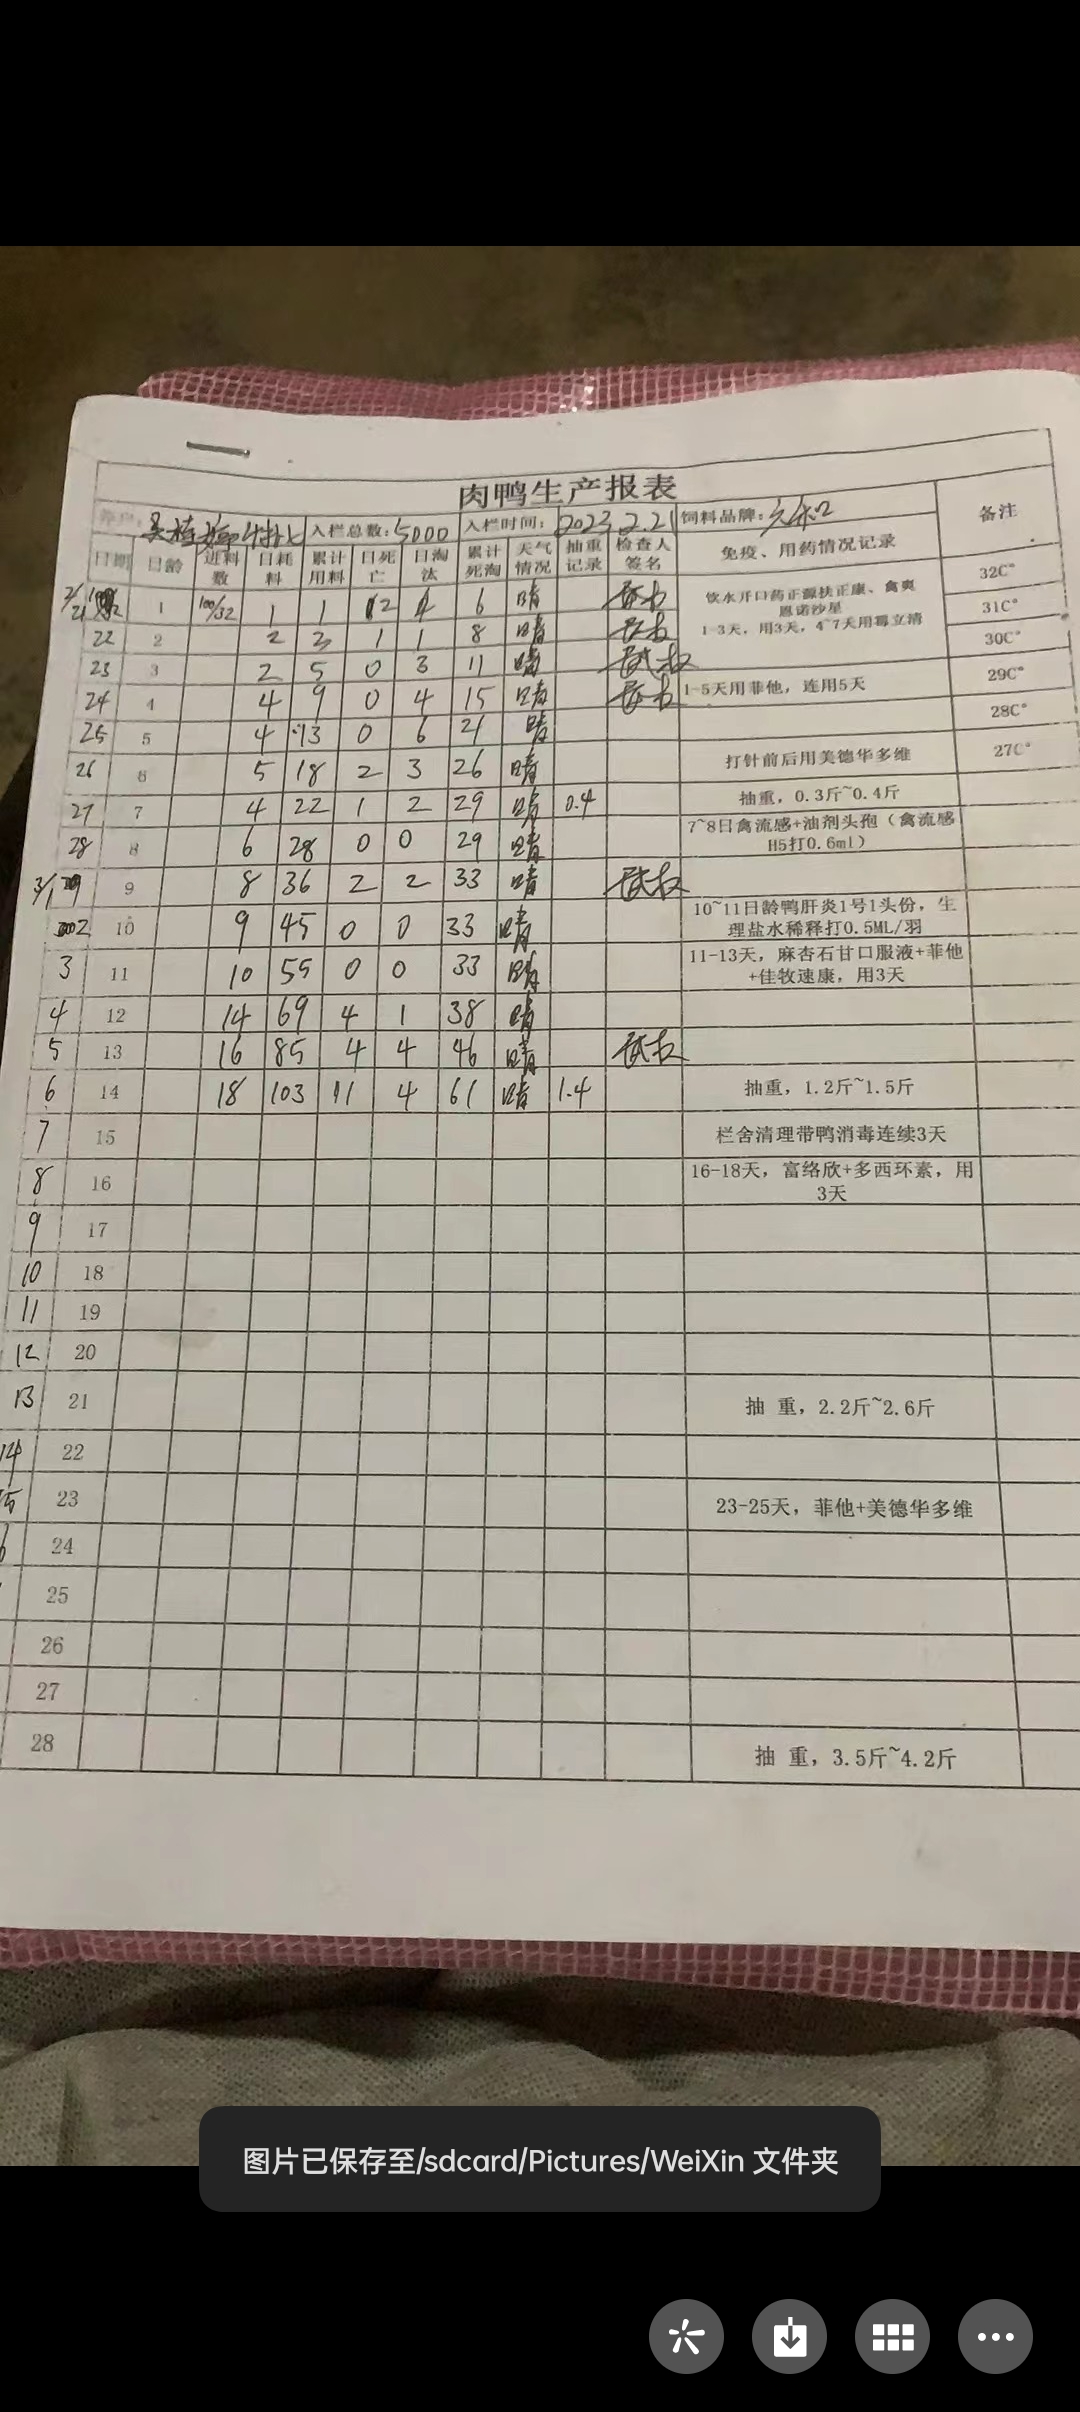 肉鸭生产报表
养户: 入栏总数:5000 入栏时间: 2023.2.21 饲料品牌: 备注
日期 日龄 进料数 日耗料 累计用料 日死亡 日淘汰 累计死淘 天气情况 抽重记录 检查人签名 免疫、用药情况记录
2/21 1 100/32 1 1 2 4 6 晴 饮水开口药正源扶正康、禽爽恩诺沙星 32C°
1-3天，用3天，4~7天用霉立清 31C°
22 2 2 3 1 1 8 晴 30C°
23 3 2 5 0 3 11 晴
24 4 4 9 0 4 15 晴 1-5天用菲他，连用5天 29C°
25 5 4 13 0 6 21 晴 28C°
26 6 5 18 2 3 26 晴 打针前后用美德华多维 27C°
27 7 4 22 1 2 29 晴 0.4 抽重，0.3斤~0.4斤
28 8 6 28 0 0 29 晴 7~8日禽流感+油剂头孢（禽流感H5打0.6ml）
3/1 9 8 36 2 2 33 晴
2 10 9 45 0 0 33 晴 10~11日龄鸭肝炎1号1头份，生理盐水稀释打0.5ML/羽
3 11 10 55 0 0 33 晴 11-13天，麻杏石甘口服液+菲他+佳牧速康，用3天
4 12 14 69 4 1 38 晴
5 13 16 85 4 4 46 晴
6 14 18 103 11 4 61 晴 1.4 抽重，1.2斤~1.5斤
7 15 栏舍清理带鸭消毒连续3天
8 16 16-18天，富络欣+多西环素，用3天
9 17
10 18
11 19
12 20
13 21 抽 重，2.2斤~2.6斤
14 22
15 23 23-25天，菲他+美德华多维
24
25
26
27
28 抽 重，3.5斤~4.2斤
图片已保存至/sdcard/Pictures/WeiXin 文件夹